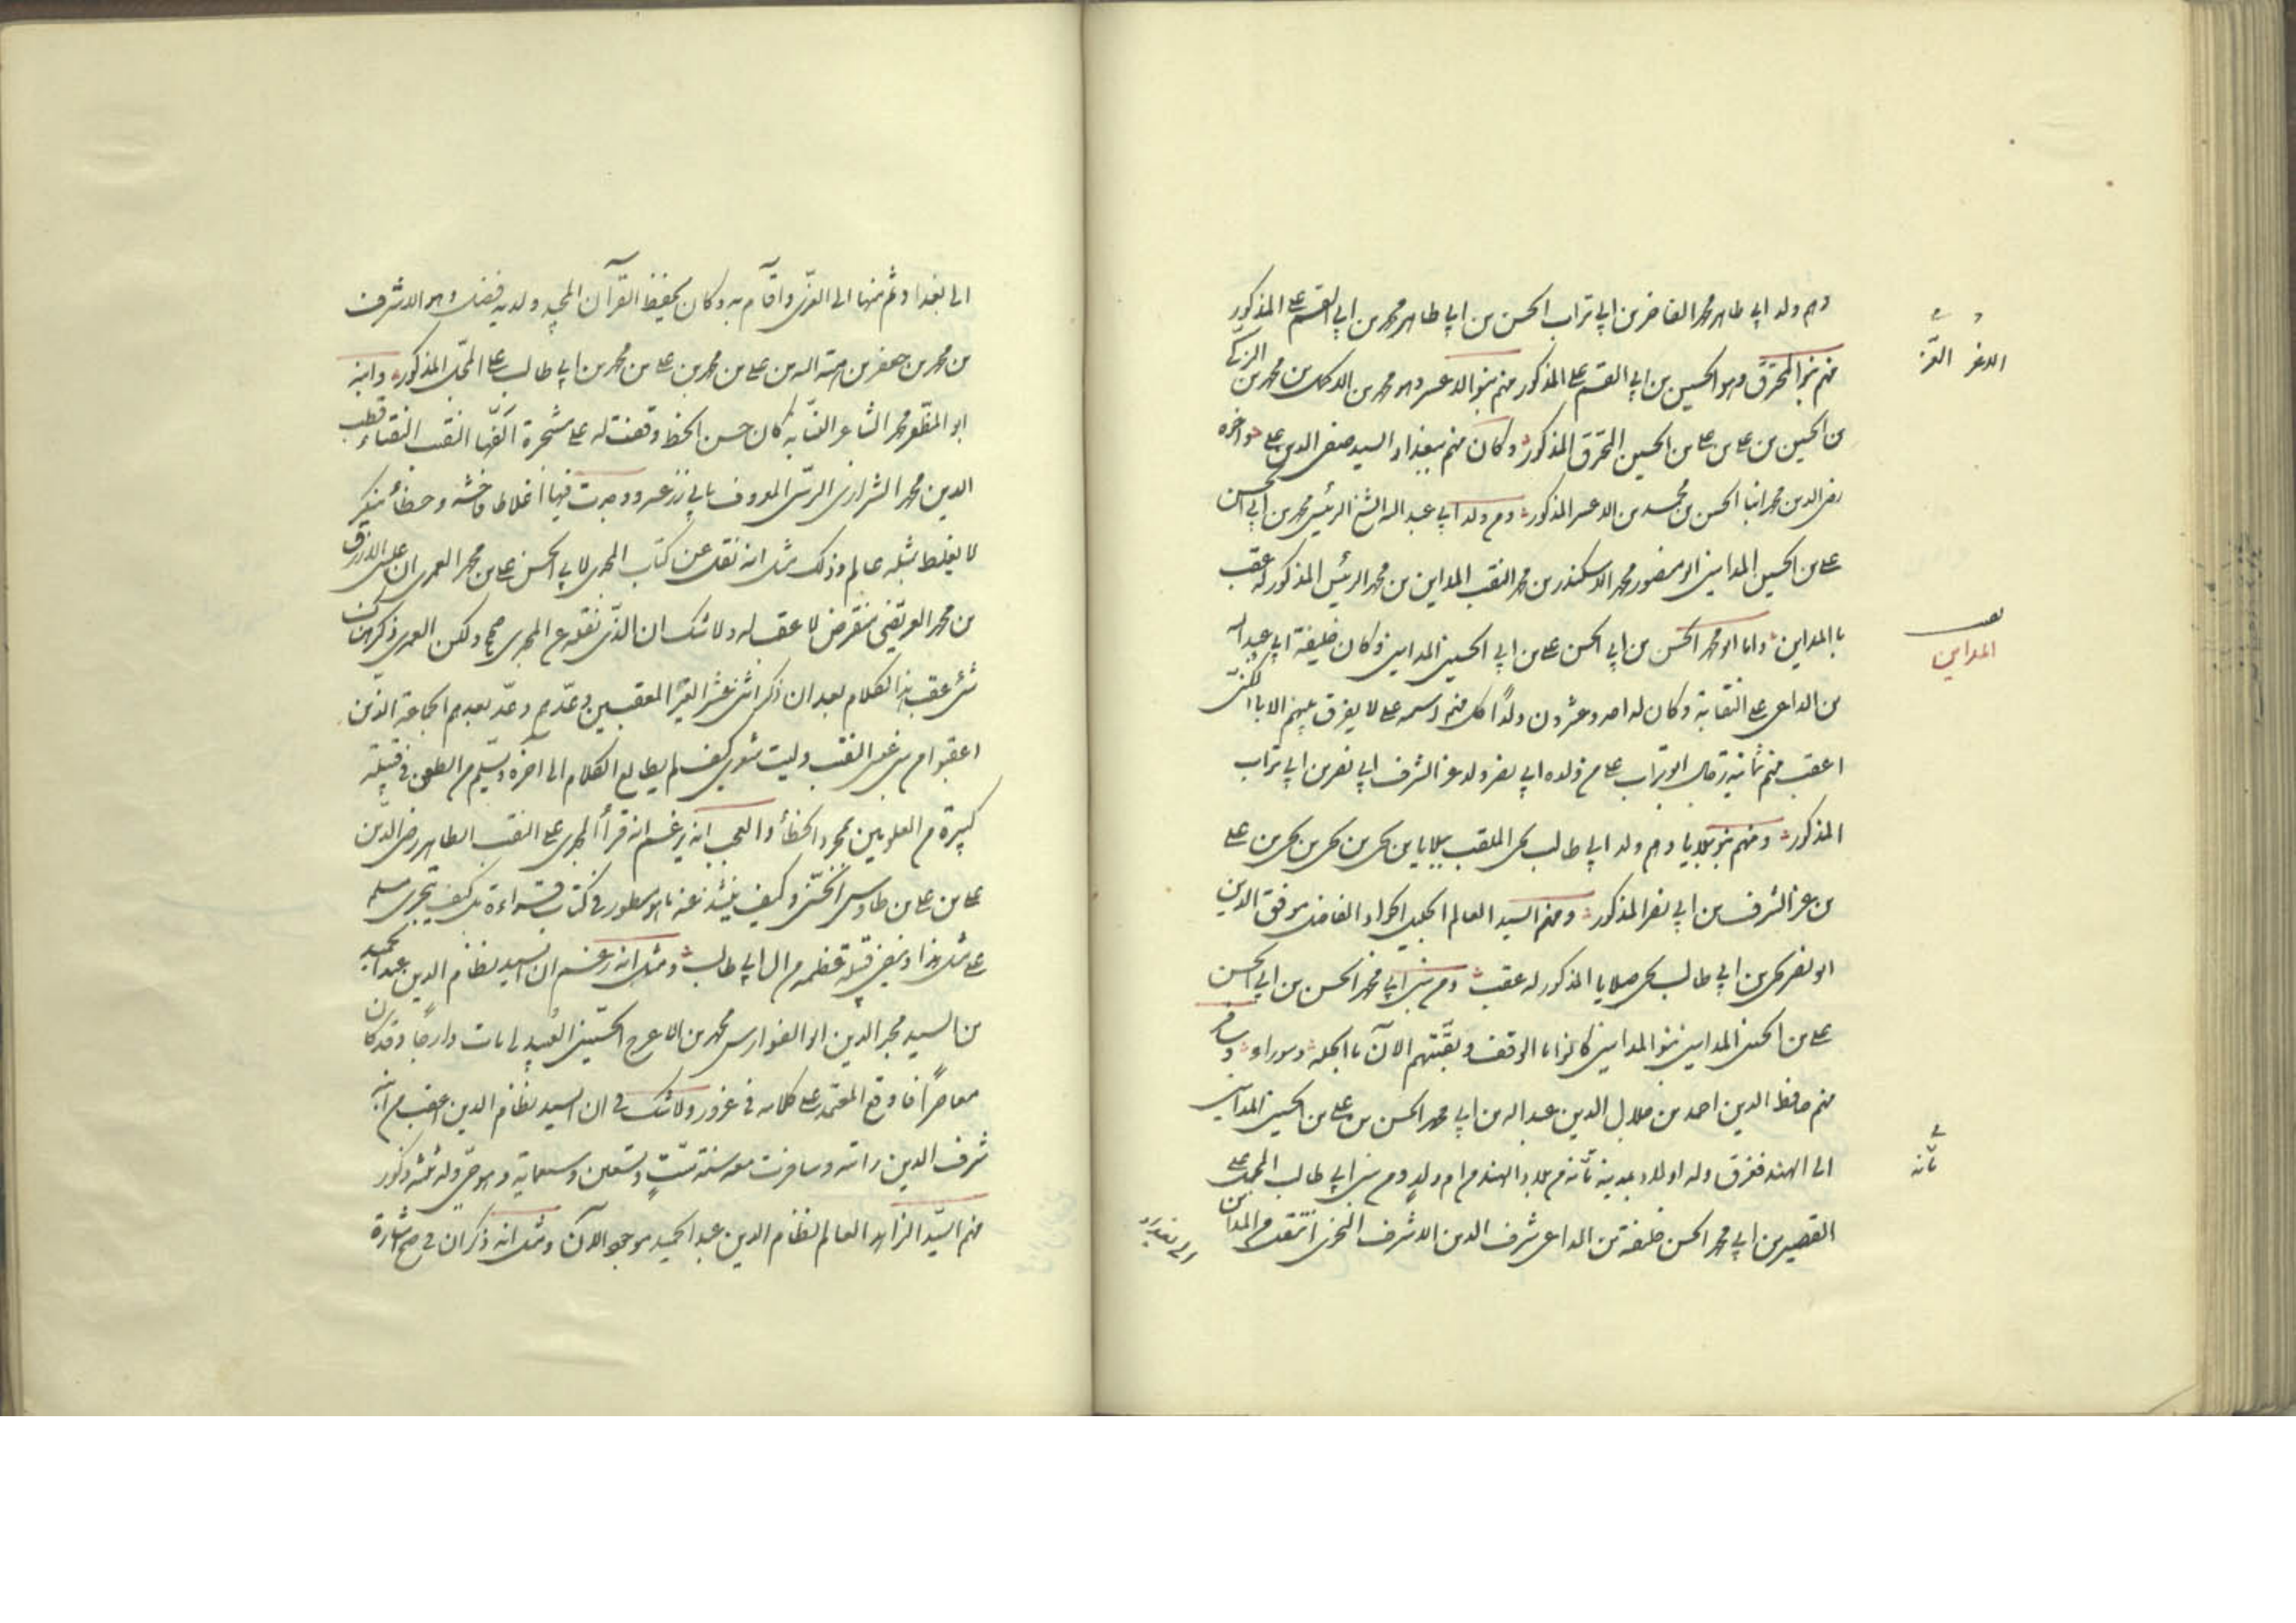 وهم ولد ابي طاهر محمد الفاخر بن ابي تراب الحسن بن ابي طاهر محمد بن ابي القسم على المذكور
منهم بنو المحترق وهو الحسين بن ابي القسم على المذكور منهم بنو الاعسر وهو محمد بن الاكمل بن محمد بن الزكى
بن الحسين بن على بن على بن الحسين المحترق المذكور وكان منهم ببغداد السيد صفى الدين على واخوه
رضى الدين محمد ابنا الحسن بن محمد بن الاعسر المذكور ومن ولد ابي عبد الله الشيخ الرئيس محمد بن ابي الحسن
على بن الحسين المدايني ابو منصور محمد الاسكندر بن محمد النقيب المداين بن محمد الرئيس المذكور له عقب
بالمداين واما ابو محمد الحسن بن ابي الحسن على بن ابي الحسين المدايني فكان خليفة ابي عبد الله
بن الداعى على النقابة وكان له احد وعشرون ولداً كل منهم اسمه على لا يفرق بينهم الا بالكنى
اعقب منهم ثمانية رجال ابو تراب على من ولده ابي نصر ولد عز الشرف ابي نصر بن ابي تراب
المذكور ومنهم بنو بلايا وهم ولد ابي طالب يحيى الملقب ببلايا بن يحيى بن يحيى بن يحيى بن على
بن عز الشرف بن ابي نصر المذكور ومنهم السيد العالم الجليل الجواد الفاضل موفق الدين
ابو نصر يحيى بن ابي طالب يحيى صلايا المذكور له عقب ومن بنى ابي محمد الحسن بن ابي الحسن
على بن الحسين المدايني بنو المدايني كانوا بالوقف وبقيتهم الآن بالحلة وسوراء و
منهم حافظ الدين احمد بن جلال الدين عبد الله بن ابي محمد الحسن بن على بن الحسين المدايني
الى الهند فغرق وله اولاد بمدينة تأنه من بلاد الهند من ام ولد ومن بنى ابي طالب المحل على
القصير بن ابي محمد الحسن خليفة بن الداعى شرف الدين الاشرف النحوى انتقل من المداين
الاعز العز
المداين
تأنه
الى بغداد ثم منها الى الغرى واقام به وكان يحفظ القرآن المجيد ولديه فضل وهو الاشرف
بن محمد بن جعفر بن هبة الله بن على بن محمد بن على بن محمد بن ابي طالب على المحل المذكور وابنه
ابو المظفر محمد الشاعر النسابه كان حسن الخط وقفت له على مشجرة الفها النقيب النقباء قطب
الدين محمد الشيرازى الرسى المعروف بابي زرعه ووجدت فيها اغلاطا فاحشه وخطأ منكر
لا يغلط بمثله عالم وذلك مثل انه نقل عن كتاب المجدى لابي الحسن على بن محمد العمرى ان عيسى الازرق
بن محمد العريضى منقرض لا عقب له ولا شك ان الذى نقله عن المجدى صحيح ولكن العمرى ذكر هناك
شئ عقب هذا الكلام بعد ان ذكر اثنى عشر المعقبين وعدهم وعد بعدهم الجماعة الذين
اعقبوا من بنى عيسى النقيب وليت شعرى كيف لم يطالع الكلام الى آخره ويسلم من الطعن في قبيلة
كبيرة من العلويين بمجرد الخطأ والعجب انه زعم انه قرأ المجدى على النقيب الطاهر رضى الدين
على بن على بن طاوس الحسنى وكيف يشذ عنه ما هو مسطور في كتاب قراءة بل كيف يتجرى مسلم
على مثل هذا وينفى قبيلة عظيمة من ال ابي طالب ومثل انه زعم ان السيد نظام الدين عبد الحميد
بن السيد مجد الدين ابو الفوارس محمد بن الاعرج الحسينى العبيدلى مات دارجا وقد كان
معاصراً فاوقع المعتمد على كلامه في غرور ولا شك في ان السيد نظام الدين اعقب من ابنه
شرف الدين رأيته وسافرت معه سنة ست وتسعين وسبعماية وهو حى وله ثلثة ذكور
منهم السيد الزاهد العالم نظام الدين عبد الحميد موجود الآن ومثل انه ذكر ان في